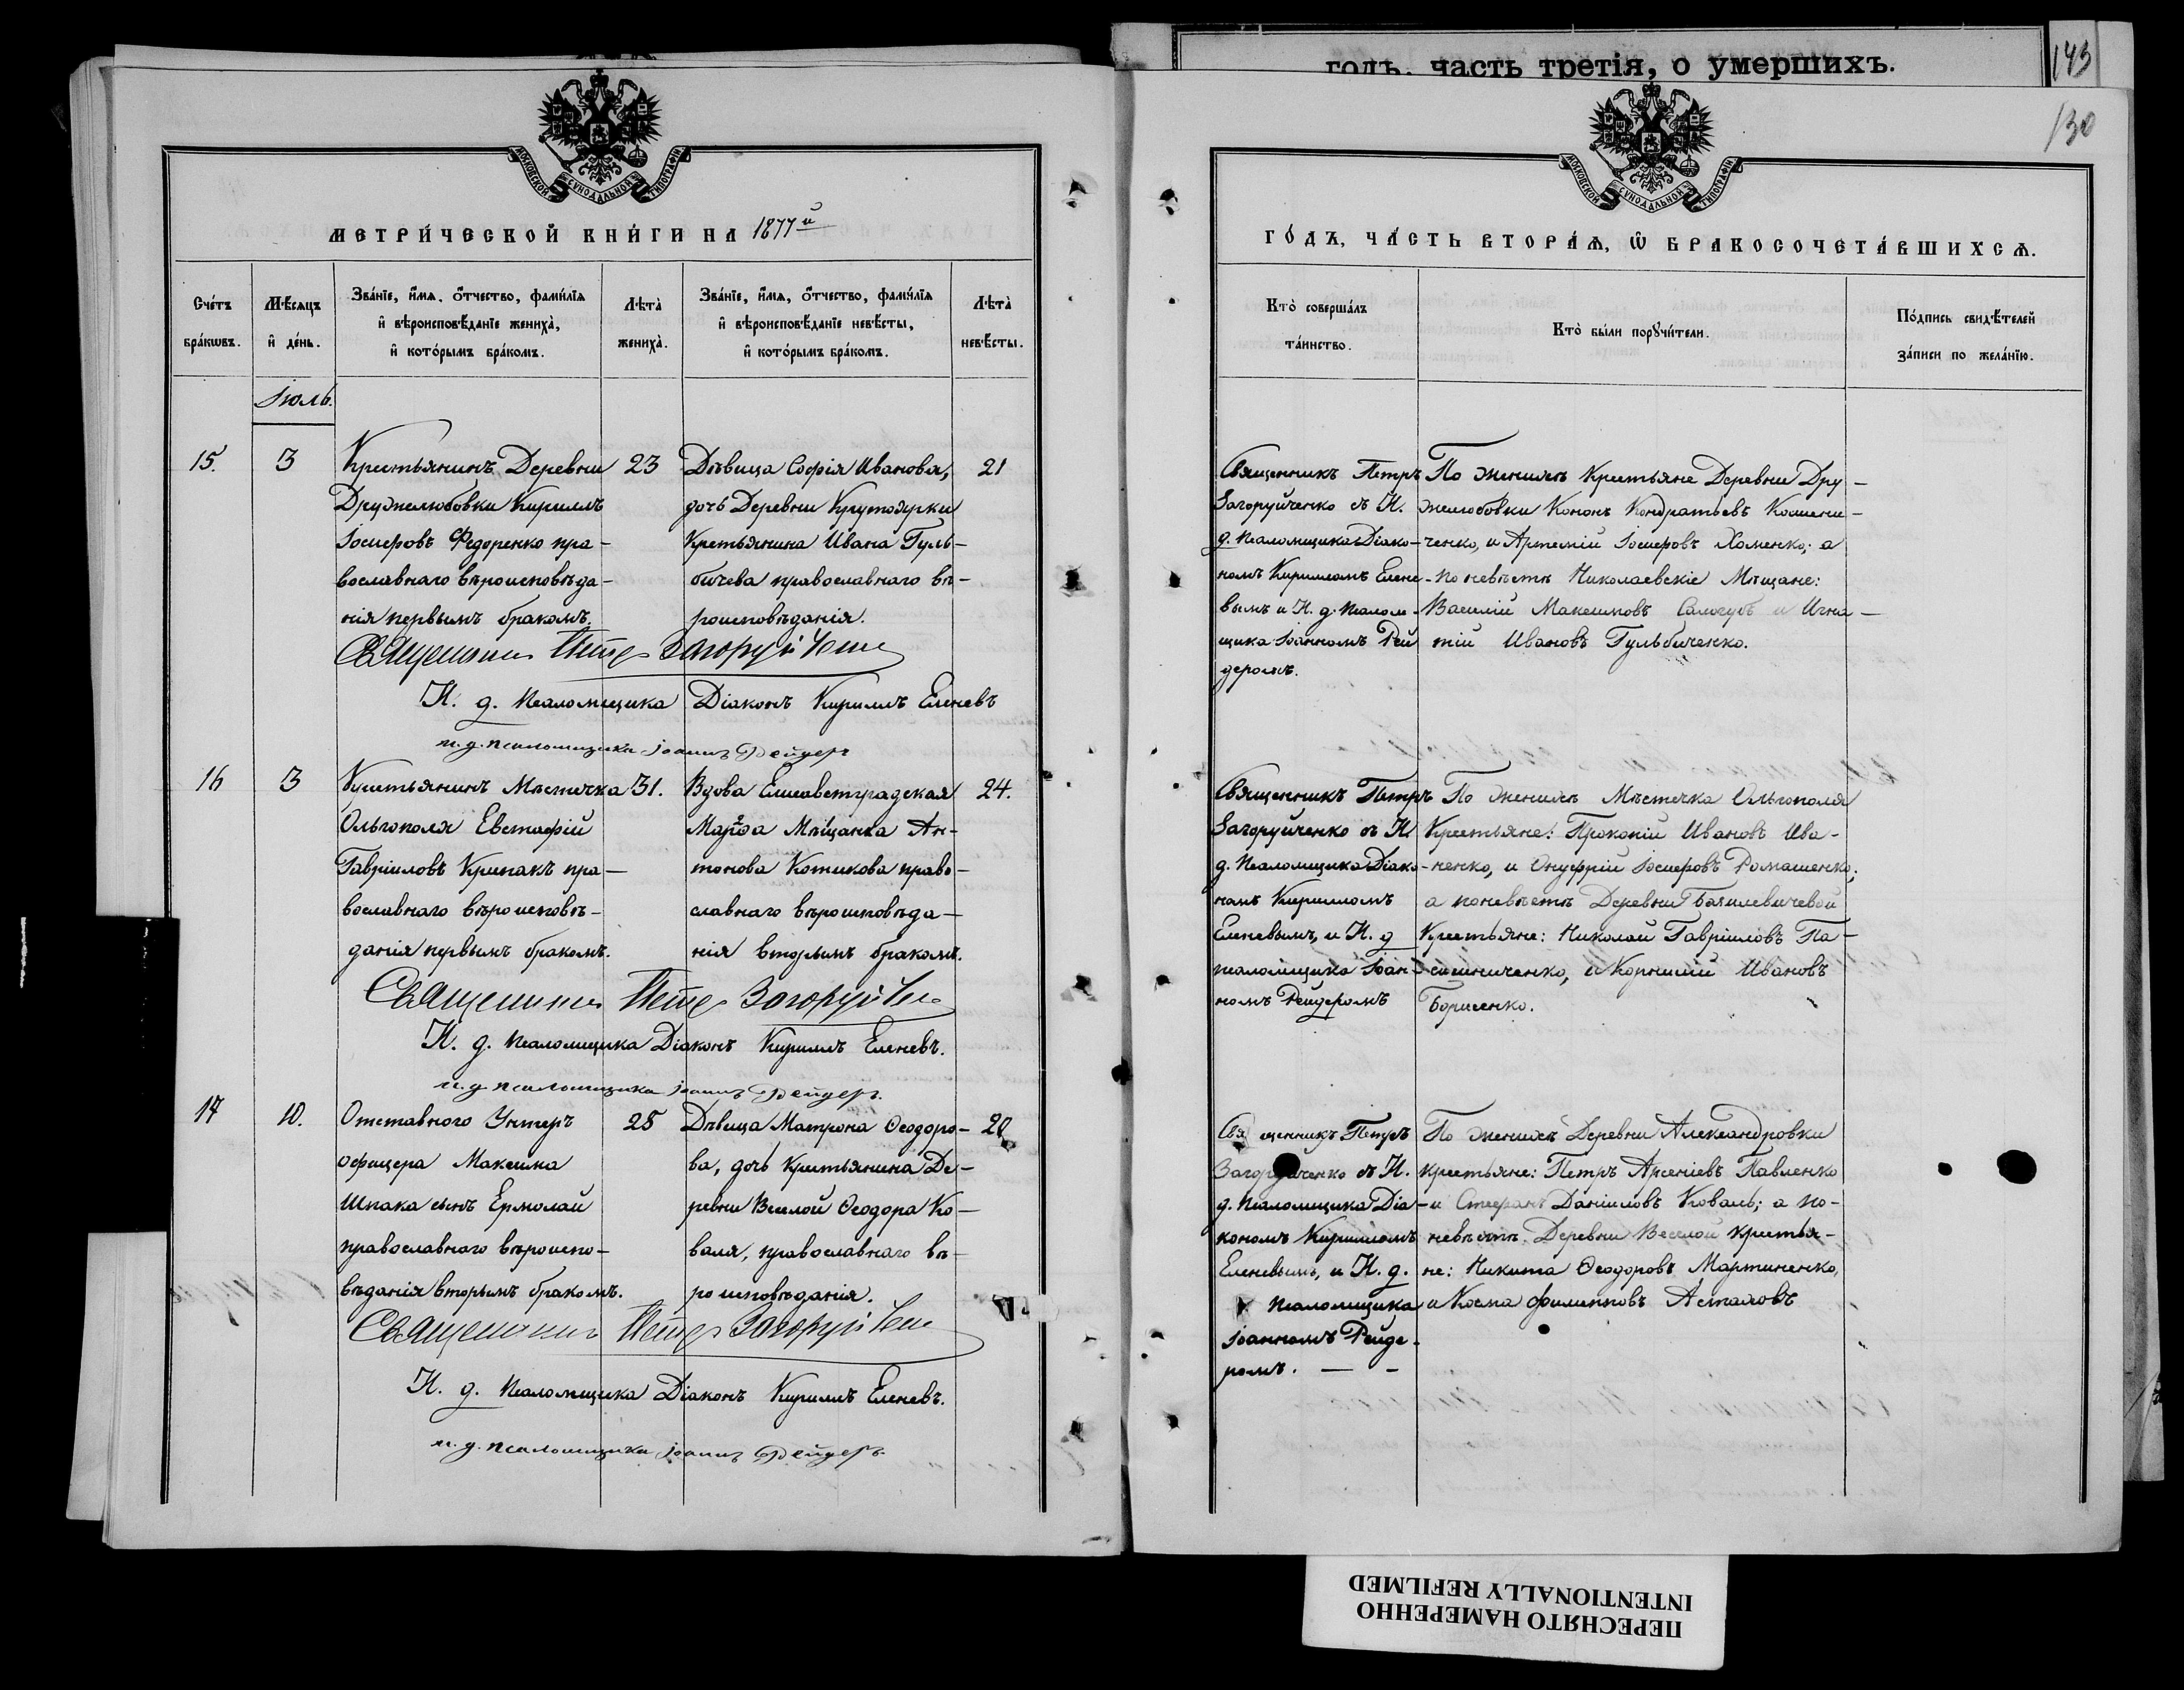 годъ, часть третія, о умершихъ.
143
130
МОСКОВСКОЙ СУНОДАЛЬНОЙ ТИПОГРАФІИ
МЕТРИ́ЧЕСКОЙ КНИ́ГИ НА 1877й
Сче́тъ бра́кѡвъ.
Мѣ́сяцъ и҆ де́нь.
Зва́нїе, и҆́мѧ, ѻ҆́тчество, фами́лїѧ
и҆ вѣроисповѣ́данїе жениха̀,
и҆ кото́рымъ бра́комъ.
Лѣта̀
жениха̀.
Зва́нїе, и҆́мѧ, ѻ҆́тчество, фами́лїѧ
и҆ вѣроисповѣ́данїе невѣ́сты,
и҆ кото́рымъ бра́комъ.
Лѣта̀
невѣ́сты.
Іюль.
15.
3
Крестьянинъ Деревни
Дружелюбовки Кириллъ
Іосифовъ Федоренко пра-
вославнаго вѣроисповѣда-
нія первымъ бракомъ.
23
Дѣвица Софія Иванова,
дочь Деревни Крутоярки
Крестьянина Ивана Гуль-
бичева православнаго вѣ-
роисповѣданія.
21
Священникъ Петръ Загоруйченко
И. д. псаломщика Діаконъ Кириллъ Еленевъ
и. д. псаломщика Іоаннъ Рейдеръ
16
3
Крестьянинъ Мѣстечка
Ольгополя Евстафій
Гавріиловъ Крипакъ пра-
вославнаго вѣроисповѣ-
данія первымъ бракомъ.
31.
Вдова Елисаветградская
Марѳа Мѣщанка Ан-
тонова Котикова право-
славнаго вѣроисповѣда-
нія вторымъ бракомъ.
24.
Священникъ Петръ Загоруйченко
И. д. псаломщика Діаконъ Кириллъ Еленевъ.
и. д. псаломщика Іоаннъ Рейдеръ.
17
10.
Отставного Унтеръ
офицера Максима
Шпака сынъ Ермолай
православнаго вѣроиспо-
вѣданія вторымъ бракомъ.
25
Дѣвица Матрона Ѳеодоро-
ва, дочь Крестьянина Де-
ревни Веселой Ѳеодора Ко-
валя, православнаго вѣ-
роисповѣданія.
20
Священникъ Петръ Загоруйченко
И. д. псаломщика Діаконъ Кириллъ Еленевъ.
и. д. псаломщика Іоаннъ Рейдеръ.
МОСКОВСКОЙ СУНОДАЛЬНОЙ ТИПОГРАФІИ
ГО́ДЪ, ЧА́СТЬ ВТОРА́Ѧ, Ѡ҆ БРАКОСОЧЕТА́ВШИХСѦ.
Кто̀ соверша́лъ
та́инство.
Кто̀ бы́ли порꙋчи́тели.
По́дпись свидѣ́телей
за́писи по жела́нїю.
Священникъ Петръ
Загоруйченко съ И.
д. псаломщика Діако-
номъ Кирилломъ Елене-
вымъ и И. д. псалом-
щика Іоанномъ Рей
деромъ.
По женихѣ Крестьяне Деревни Дру-
желюбовки Кононъ Кондратьевъ
и Артемій Іосифовъ Хоменко; а
по невѣстѣ Николаевскіе Мѣщане:
Василій Максимовъ Салогубъ и Игна-
тій Ивановъ Гульбиченко.
Священникъ Петръ
Загоруйченко съ И.
д. псаломщика Діако-
номъ Кирилломъ
Еленевымъ, и И. д
псаломщика Іоан-
номъ Рейдеромъ
По женихѣ Мѣстечка Ольгополя
Крестьяне: Прокопій Ивановъ Ива-
ненко, и Онуфрій Іосифовъ Ромашенко;
а по невѣстѣ Деревни
Крестьяне: Николай Гавріиловъ Па-
сишниченко, и Корнилій Ивановъ
Борисенко.
Священникъ Петръ
Загоруйченко съ И.
д. псаломщика Діа-
кономъ Кирилломъ
Еленевымъ, и И. д.
псаломщика
Іоанномъ Рейде-
ромъ.
По женихѣ Деревни Александровки
крестьяне: Петръ Арсеніевъ Павленко
и Стефанъ Даніиловъ Коваль; а по-
невѣстѣ Деревни Веселой крестья-
не: Никита Ѳеодоровъ Мартиненко,
и Косма Филипповъ Астаховъ
ПЕРЕСНЯТО НАМЕРЕННО
INTENTIONALLY REFILMED